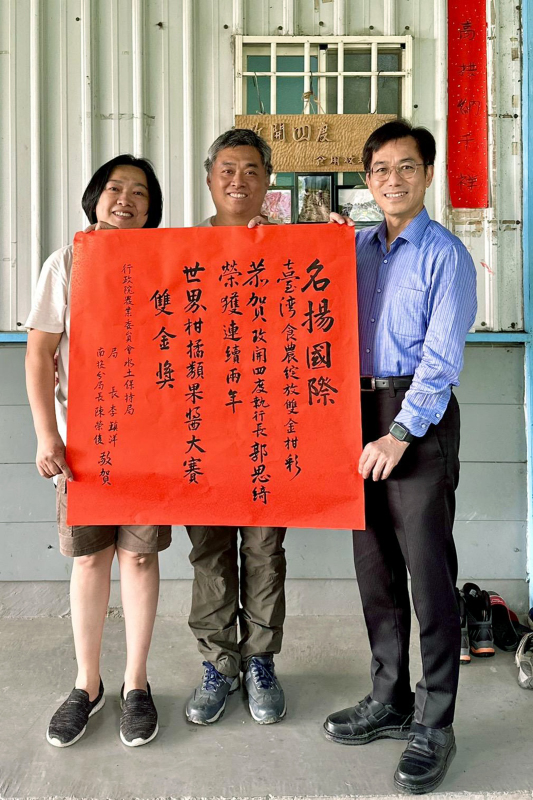 名揚國際
臺湾食農綻放雙金柑彩
恭賀改開四度執行長郭思綺
榮獲連續兩年
世界柑橘類果醬大賽
雙金獎
行政院農業委員會水土保持局
局長李鎮洋
南投分局長陳榮俊敬賀
開四度